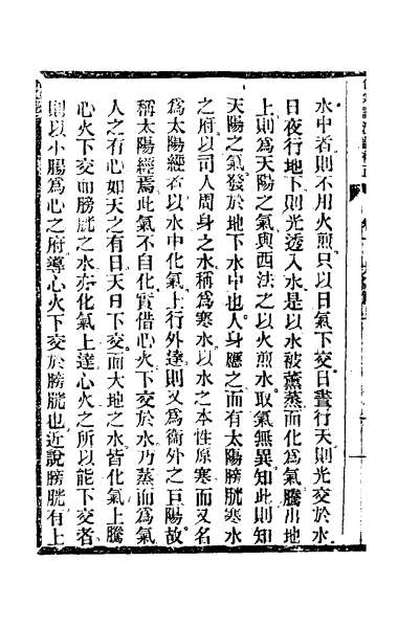 水中者則不用火煎只以日氣下交日晝行天則光交於水
日夜行地下則光透入水是以水被薰蒸而化為氣騰出地
上則為天陽之氣與西法之以火煎水取氣無異知此則知
天陽之氣發於地下水中也人身應之而有太陽膀胱寒水
之府以司人周身之水稱為寒水以水之本性原寒而又名
為太陽經者以水中化氣上行外達則又為衛外之巨陽故
稱太陽經焉此氣不自化實借心火下交於水乃蒸而為氣
人之有心如天之有日天日下交而大地之水皆化氣上騰
心火下交而膀胱之水亦化氣上達心火之所以能下交者
則以小腸為心之府導心火下交於膀胱也近說膀胱有上